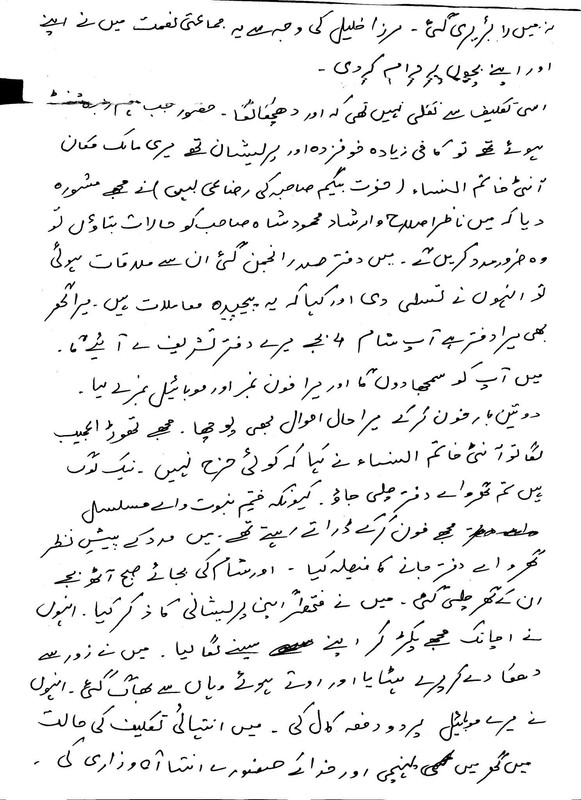 نہیں رابری گئی۔ مرزا خلیل کی وجہ سے یہ جماعتی نعمت میں نے اپنے
اور اپنے بچوں پر حرام کر دی۔
اسی تکلیف سے نکلی نہیں تھی کہ اور دھچکا لگا۔ حضور جب ہم
ہوئے تھے تو کافی زیادہ خوفزدہ اور پریشان تھے میری مالک مکان
آنٹی خاتم النساء (حوت بیگم صاحبہ کی رضاعی بیٹی) نے مجھے مشورہ
دیا کہ میں ناظر اصلاح و ارشاد محمود شاہ صاحب کو حالات بتاؤں تو
وہ ضرور مدد کریں گے۔ میں دفتر صدر انجمن گئی ان سے ملاقات ہوئی
تو انہوں نے تسلی دی اور کہا کہ یہ پیچیدہ معاملات ہیں۔ میرا گھر
بھی میرا دفتر ہے آپ شام 4 بجے میرے دفتر تشریف لے آئیے گا۔
میں آپ کو سمجھا دوں گا اور میرا فون نمبر اور موبائیل نمبر لے لیا۔
دو تین بار فون کر کے میرا حال احوال بھی پوچھا۔ مجھے تھوڑا عجیب
لگا تو آنٹی خاتم النساء نے کہا کہ کوئی حرج نہیں۔ نیک لوگ
ہیں تم گھر والے دفتر چلی جاؤ۔ کیونکہ ختم نبوت والے مسلسل
مجھے فون کر کے ڈراتے رہتے تھے۔ میں مدد کے پیش نظر
گھر والے دفتر جانے کا فیصلہ کیا۔ اور شام کی بجائے صبح آٹھ بجے
ان کے گھر چلی گئی۔ میں نے مختصراً اپنی پریشانی کا ذکر کیا۔ انہوں
نے اچانک مجھے پکڑ کر اپنے سینے لگا لیا۔ میں نے زور سے
دھکا دے کر پرے ہٹایا اور روتے ہوئے وہاں سے بھاگ گئی۔ انہوں
نے میرے موبائیل پر دو دفعہ کال کی۔ میں انتہائی تکلیف کی حالت
میں گھر میں پہنچی اور خدا کے حضور بے انتہا آہ و زاری کی۔